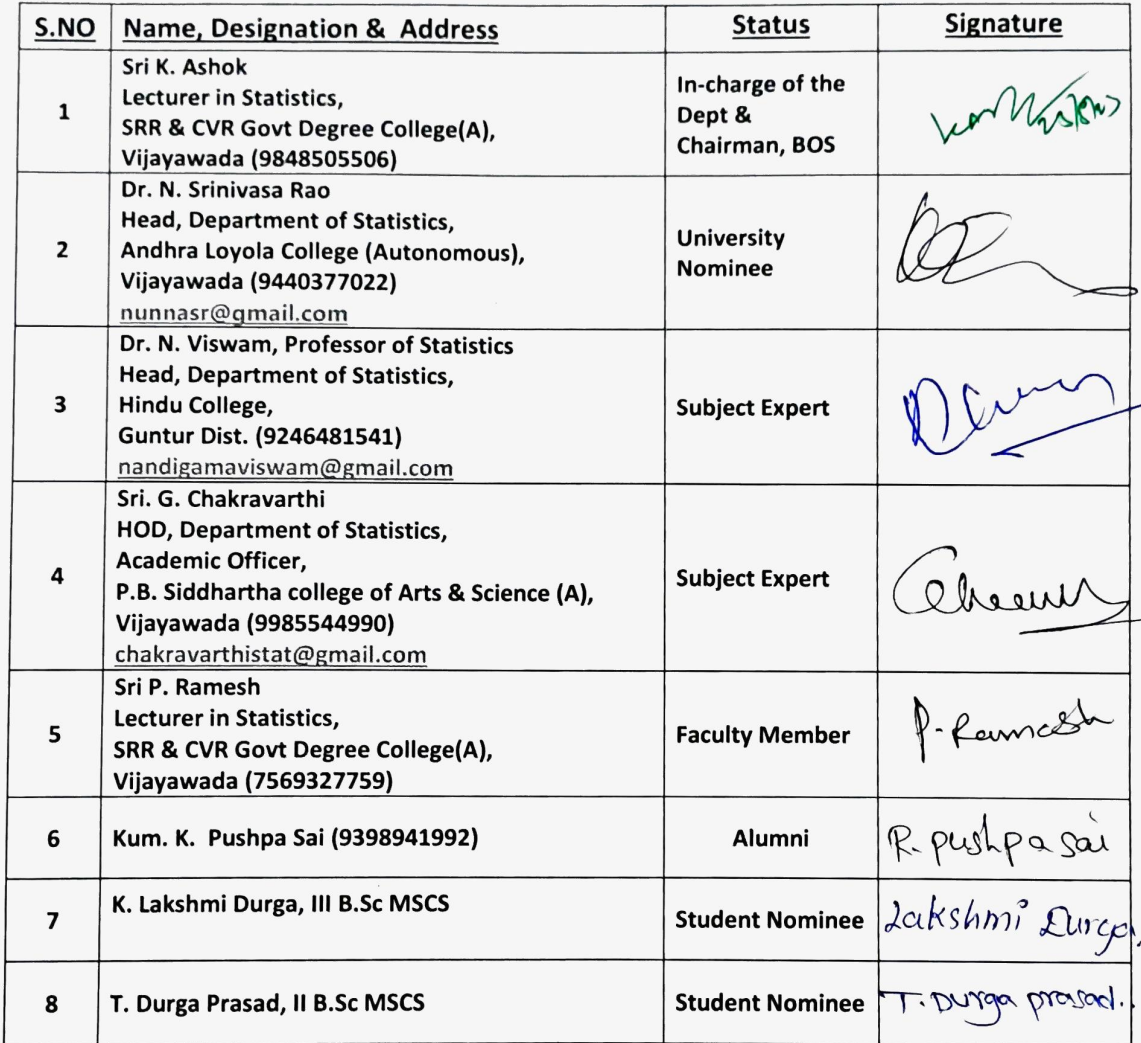 S.NO Name, Designation & Address Status Signature
1
Sri K. Ashok
Lecturer in Statistics,
SRR & CVR Govt Degree College(A),
Vijayawada (9848505506)
In-charge of the
Dept &
Chairman, BOS
2
Dr. N. Srinivasa Rao
Head, Department of Statistics,
Andhra Loyola College (Autonomous),
Vijayawada (9440377022)
nunnasr@gmail.com
University
Nominee
3
Dr. N. Viswam, Professor of Statistics
Head, Department of Statistics,
Hindu College,
Guntur Dist. (9246481541)
nandigamaviswam@gmail.com
Subject Expert
4
Sri. G. Chakravarthi
HOD, Department of Statistics,
Academic Officer,
P.B. Siddhartha college of Arts & Science (A),
Vijayawada (9985544990)
chakravarthistat@gmail.com
Subject Expert
5
Sri P. Ramesh
Lecturer in Statistics,
SRR & CVR Govt Degree College(A),
Vijayawada (7569327759)
Faculty Member
P. Ramesh
6
Kum. K. Pushpa Sai (9398941992)
Alumni
R. pushpa sai
7
K. Lakshmi Durga, III B.Sc MSCS
Student Nominee
Lakshmi Durga,
8
T. Durga Prasad, II B.Sc MSCS
Student Nominee
T. Durga prasad.